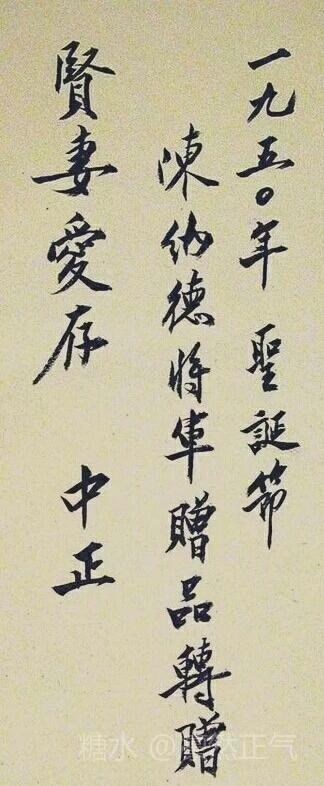 一九五〇年 聖誕節
陳納德將軍贈品轉贈
賢妻愛存 中正
糖水 @然正气